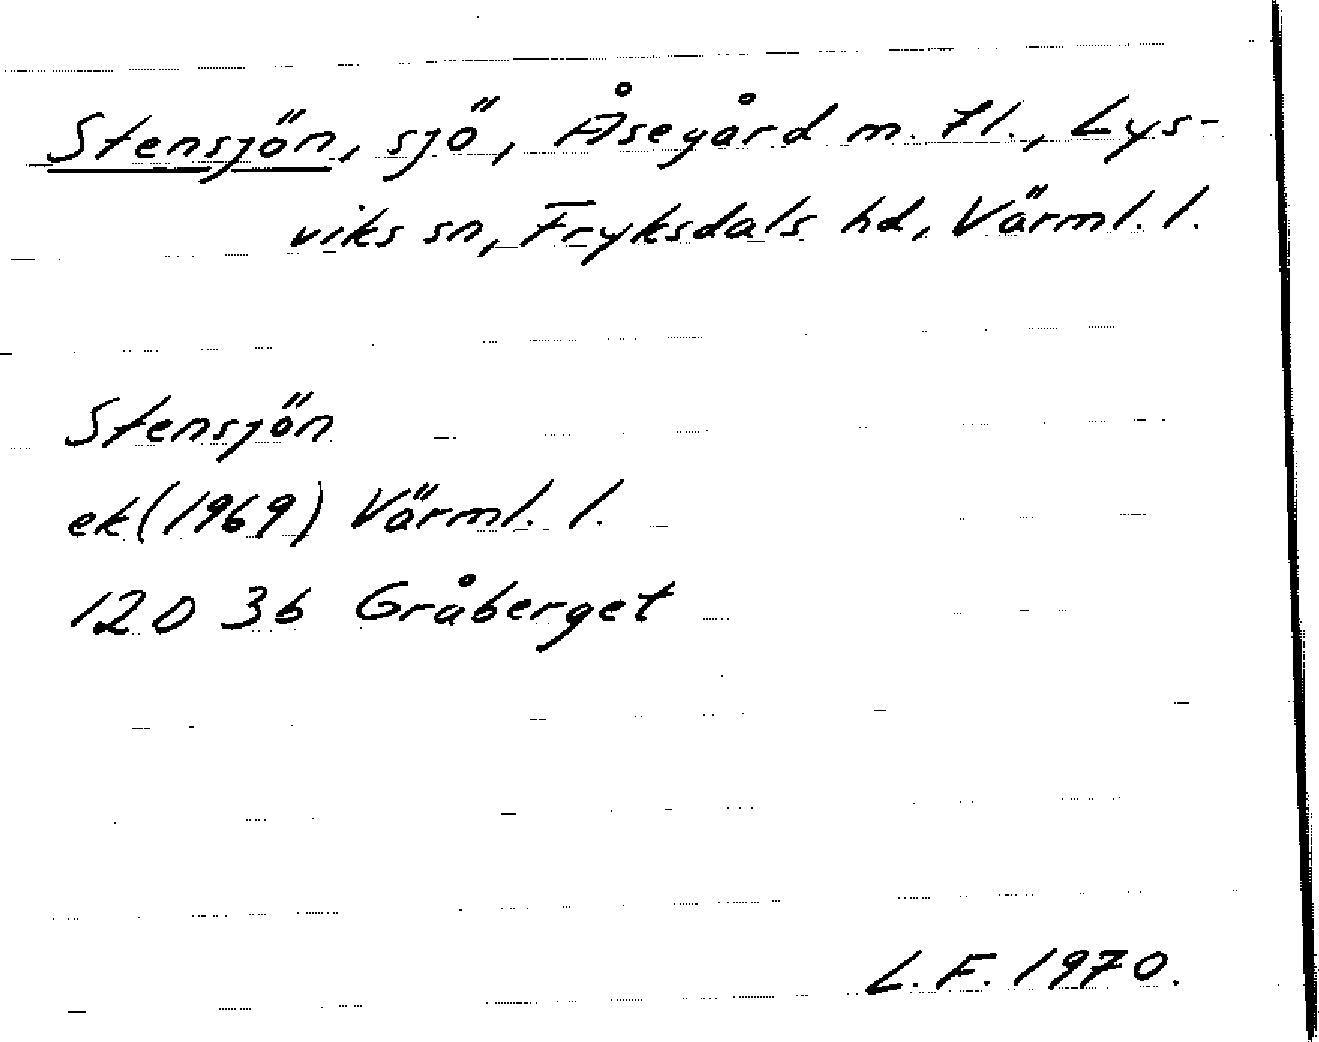 Stensjön, sjö, Åsegård m. fl., Lys-
viks sn, Fryksdals hd, Värml. l.
Stensjön
ek (1969) Värml. l.
12D 3b Gråberget
L. F. 1970.